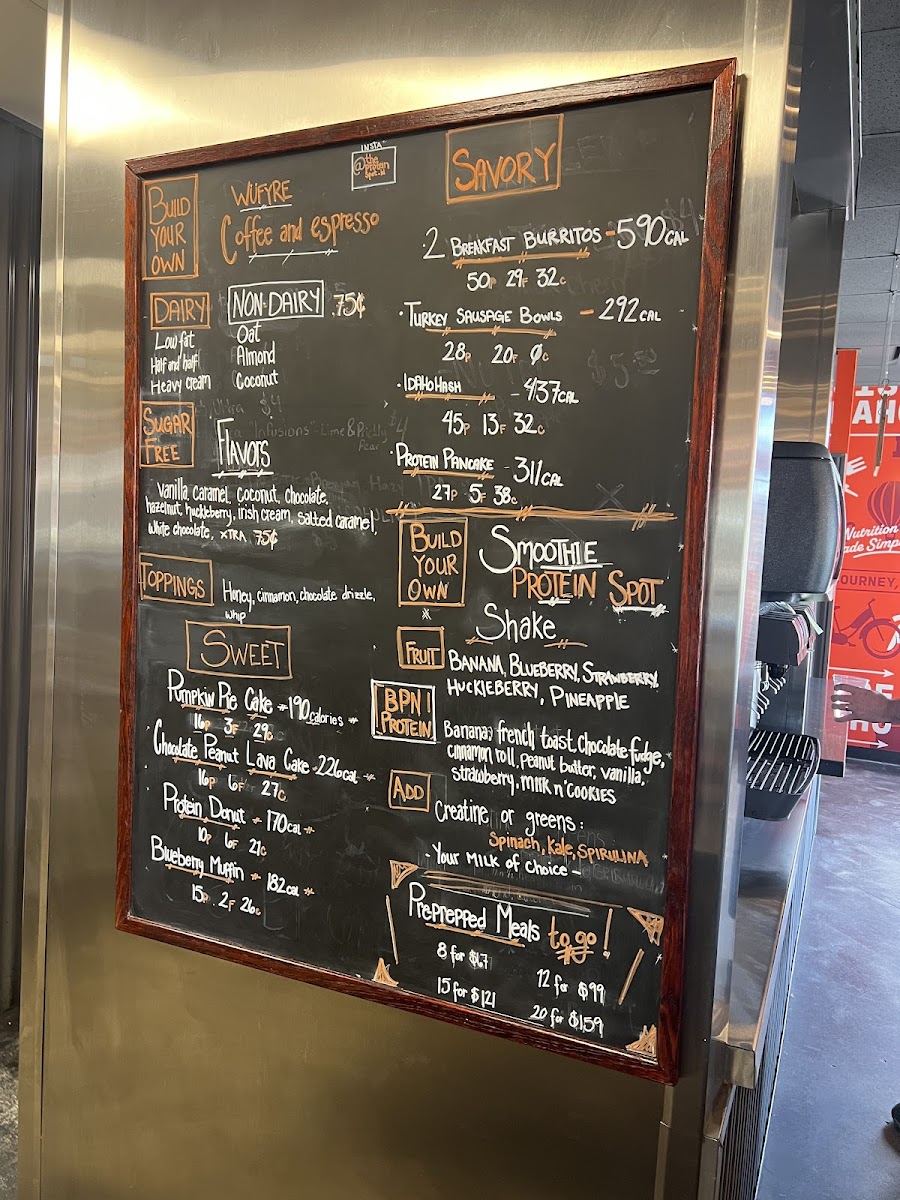 INSTA
@the protein spot.id
BUILD
YOUR
OWN
WÜFYRE
Coffee and espresso
DAIRY
NON-DAIRY .75¢
Low fat
Half and half
Heavy cream
Oat
Almond
Coconut
SUGAR
FREE
FLAVORS
vanilla, caramel, coconut, chocolate,
hazelnut, huckleberry, irish cream, salted caramel,
white chocolate, XTRA .75¢
TOPPINGS
Honey, cinnamon, chocolate drizzle,
whip
SWEET
Pumpkin Pie Cake - 190 calories
16P 3F 29C
Chocolate Peanut Lava Cake - 226 cal
16P 6F 27C
Protein Donut - 170 cal
10P 6F 21C
Blueberry Muffin - 182 cal
15P 2F 26C
SAVORY
· 2 BREAKFAST BURRITOS - 590 CAL
50P 29F 32C
· TURKEY SAUSAGE BOWLS - 292 CAL
28P 20F 0C
· IDAHO HASH - 437 CAL
45P 13F 32C
· PROTEIN PANCAKE - 311 CAL
27P 5F 38C
BUILD
YOUR
OWN
SMOOTHIE
PROTEIN SPOT
Shake
FRUIT
BANANA, BLUEBERRY, STRAWBERRY,
HUCKLEBERRY, PINEAPPLE
BPN
PROTEIN
Banana, french toast, chocolate fudge,
cinnamon roll, peanut butter, vanilla,
strawberry, MILK n' COOKIES
ADD
Creatine or greens:
Spinach, Kale, SPIRULINA
- YOUR MILK OF CHOICE -
PREPREPPED MEALS to go!
8 for $67
12 for $99
15 for $121
20 for $159
Nutrition
ade Simp
OURNEY,